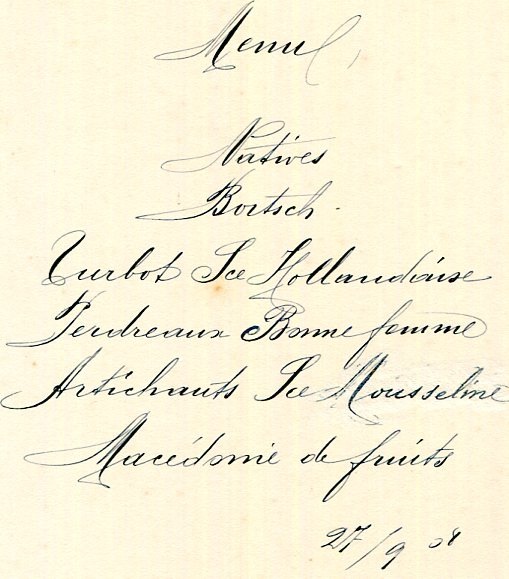 Menu
Natives
Bortsch.
Turbot Sce Hollandaise
Perdreaux Bonne femme
Artichauts Sce Mousseline
Macédonie de fruits
27/9 08